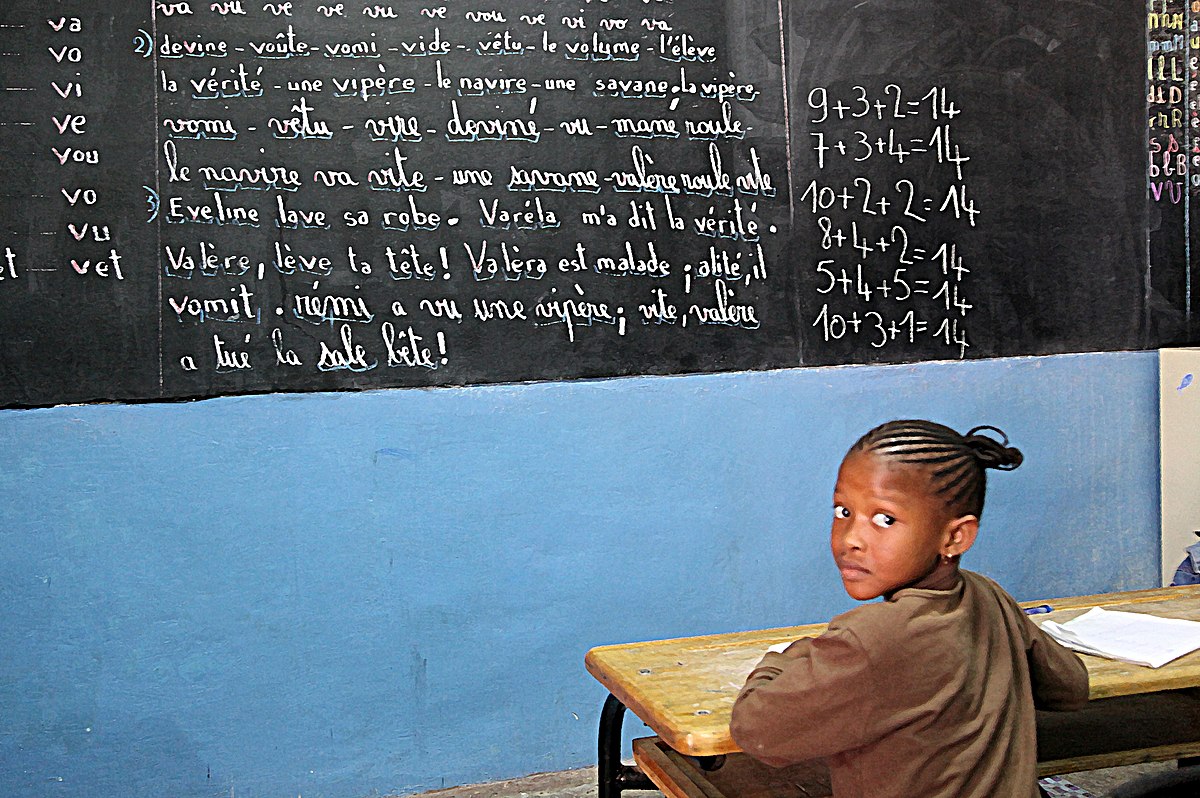 va
vo
vi
ve
vou
vo
vu
et vet
va vu ve ve vu ve vou ve vi vo va
2) devine - voûte - vomi - vide - vêtu - le volume - l'élève
la vérité - une vipère - le navire - une savane. la vipère
vomi - vêtu - vire - deviné - vu - mané roule.
le navire va vite - une savane - valère roule vite
3) Eveline lave sa robe. Varéla m'a dit la vérité.
Valère, lève ta tête! Valèra est malade ; alité, il
vomit. rémi a vu une vipère ; vite, valère
a tué la sale bête!
9+3+2=14
7+3+4=14
10+2+2=14
8+4+2=14
5+4+5=14
10+3+1=14
l l L
d D
r R
s s
b b B
v V